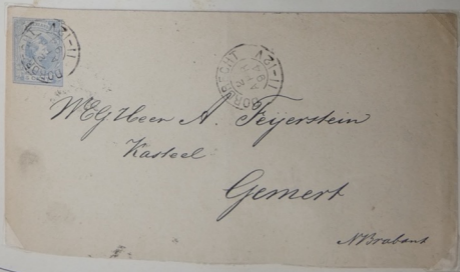 DORDRECHT
11-12V
WelEdHeer A. Feijerstein
Kasteel
Gemert
N Brabant